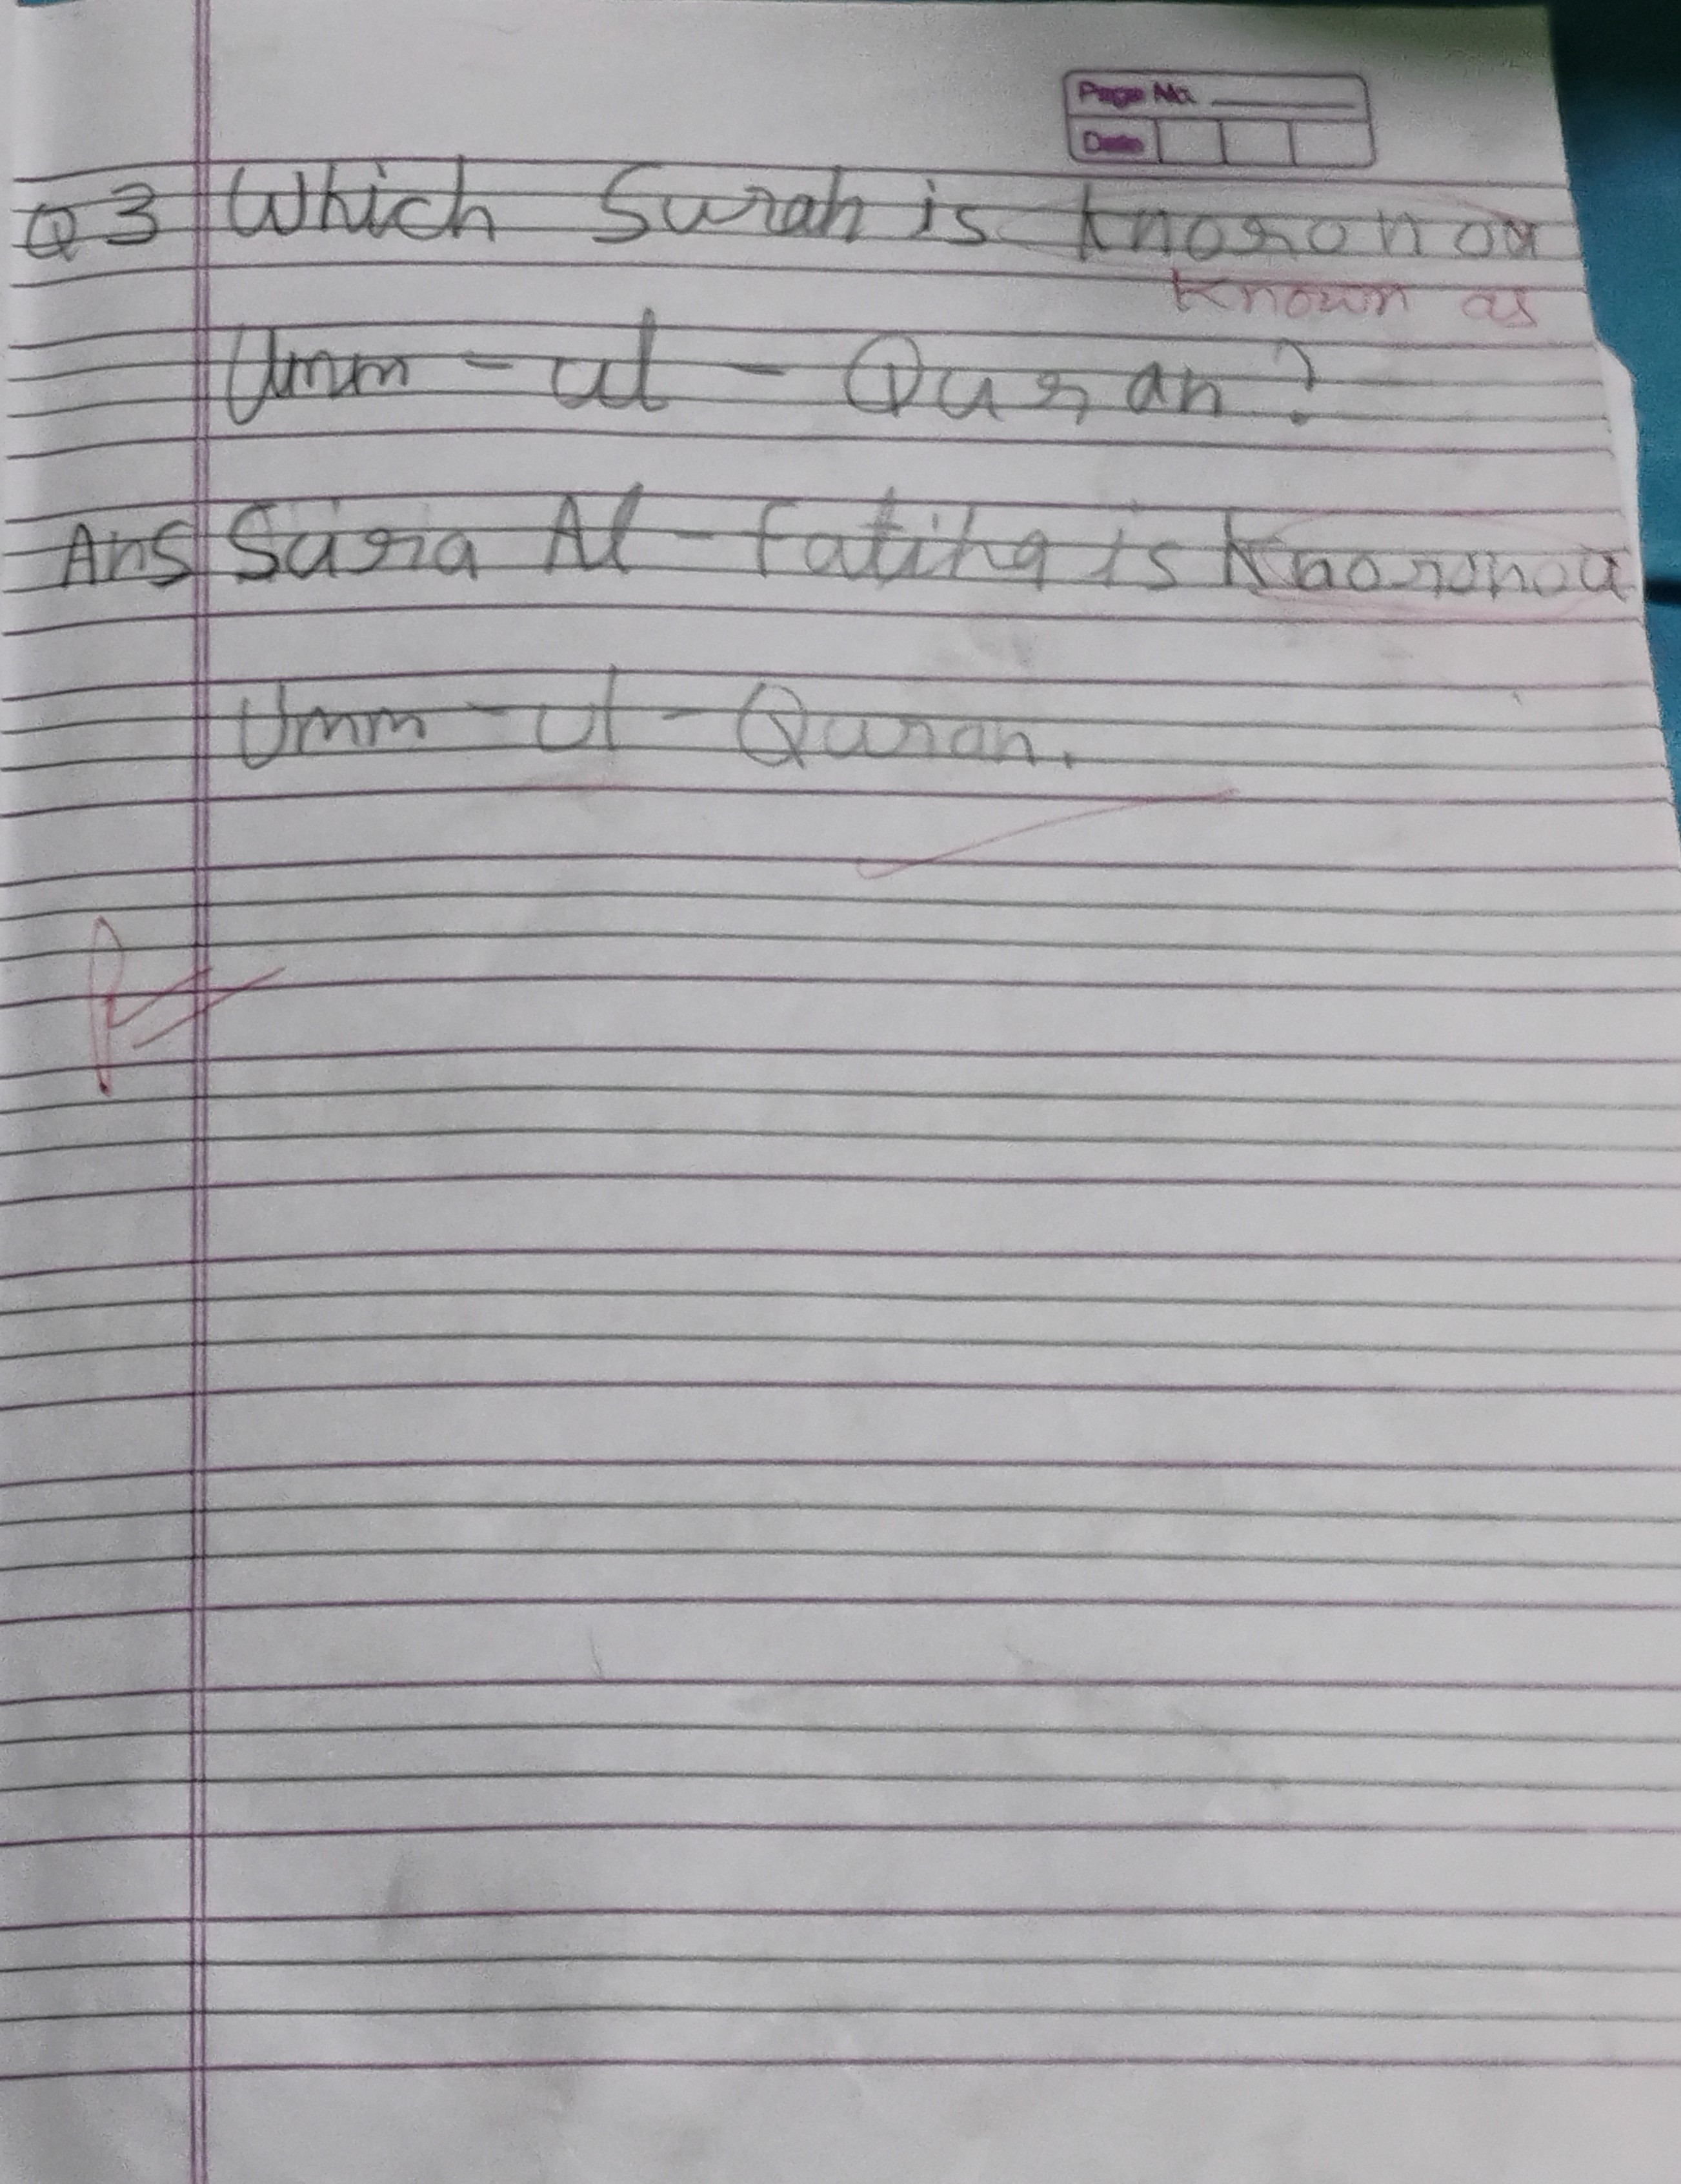 Page No.
Date
Q3 Which Surah is knoronoa
known as
Umm-ul-Quran?
Ans Sura Al-fatiha is Knoronoa
Umm-ul-Quran.